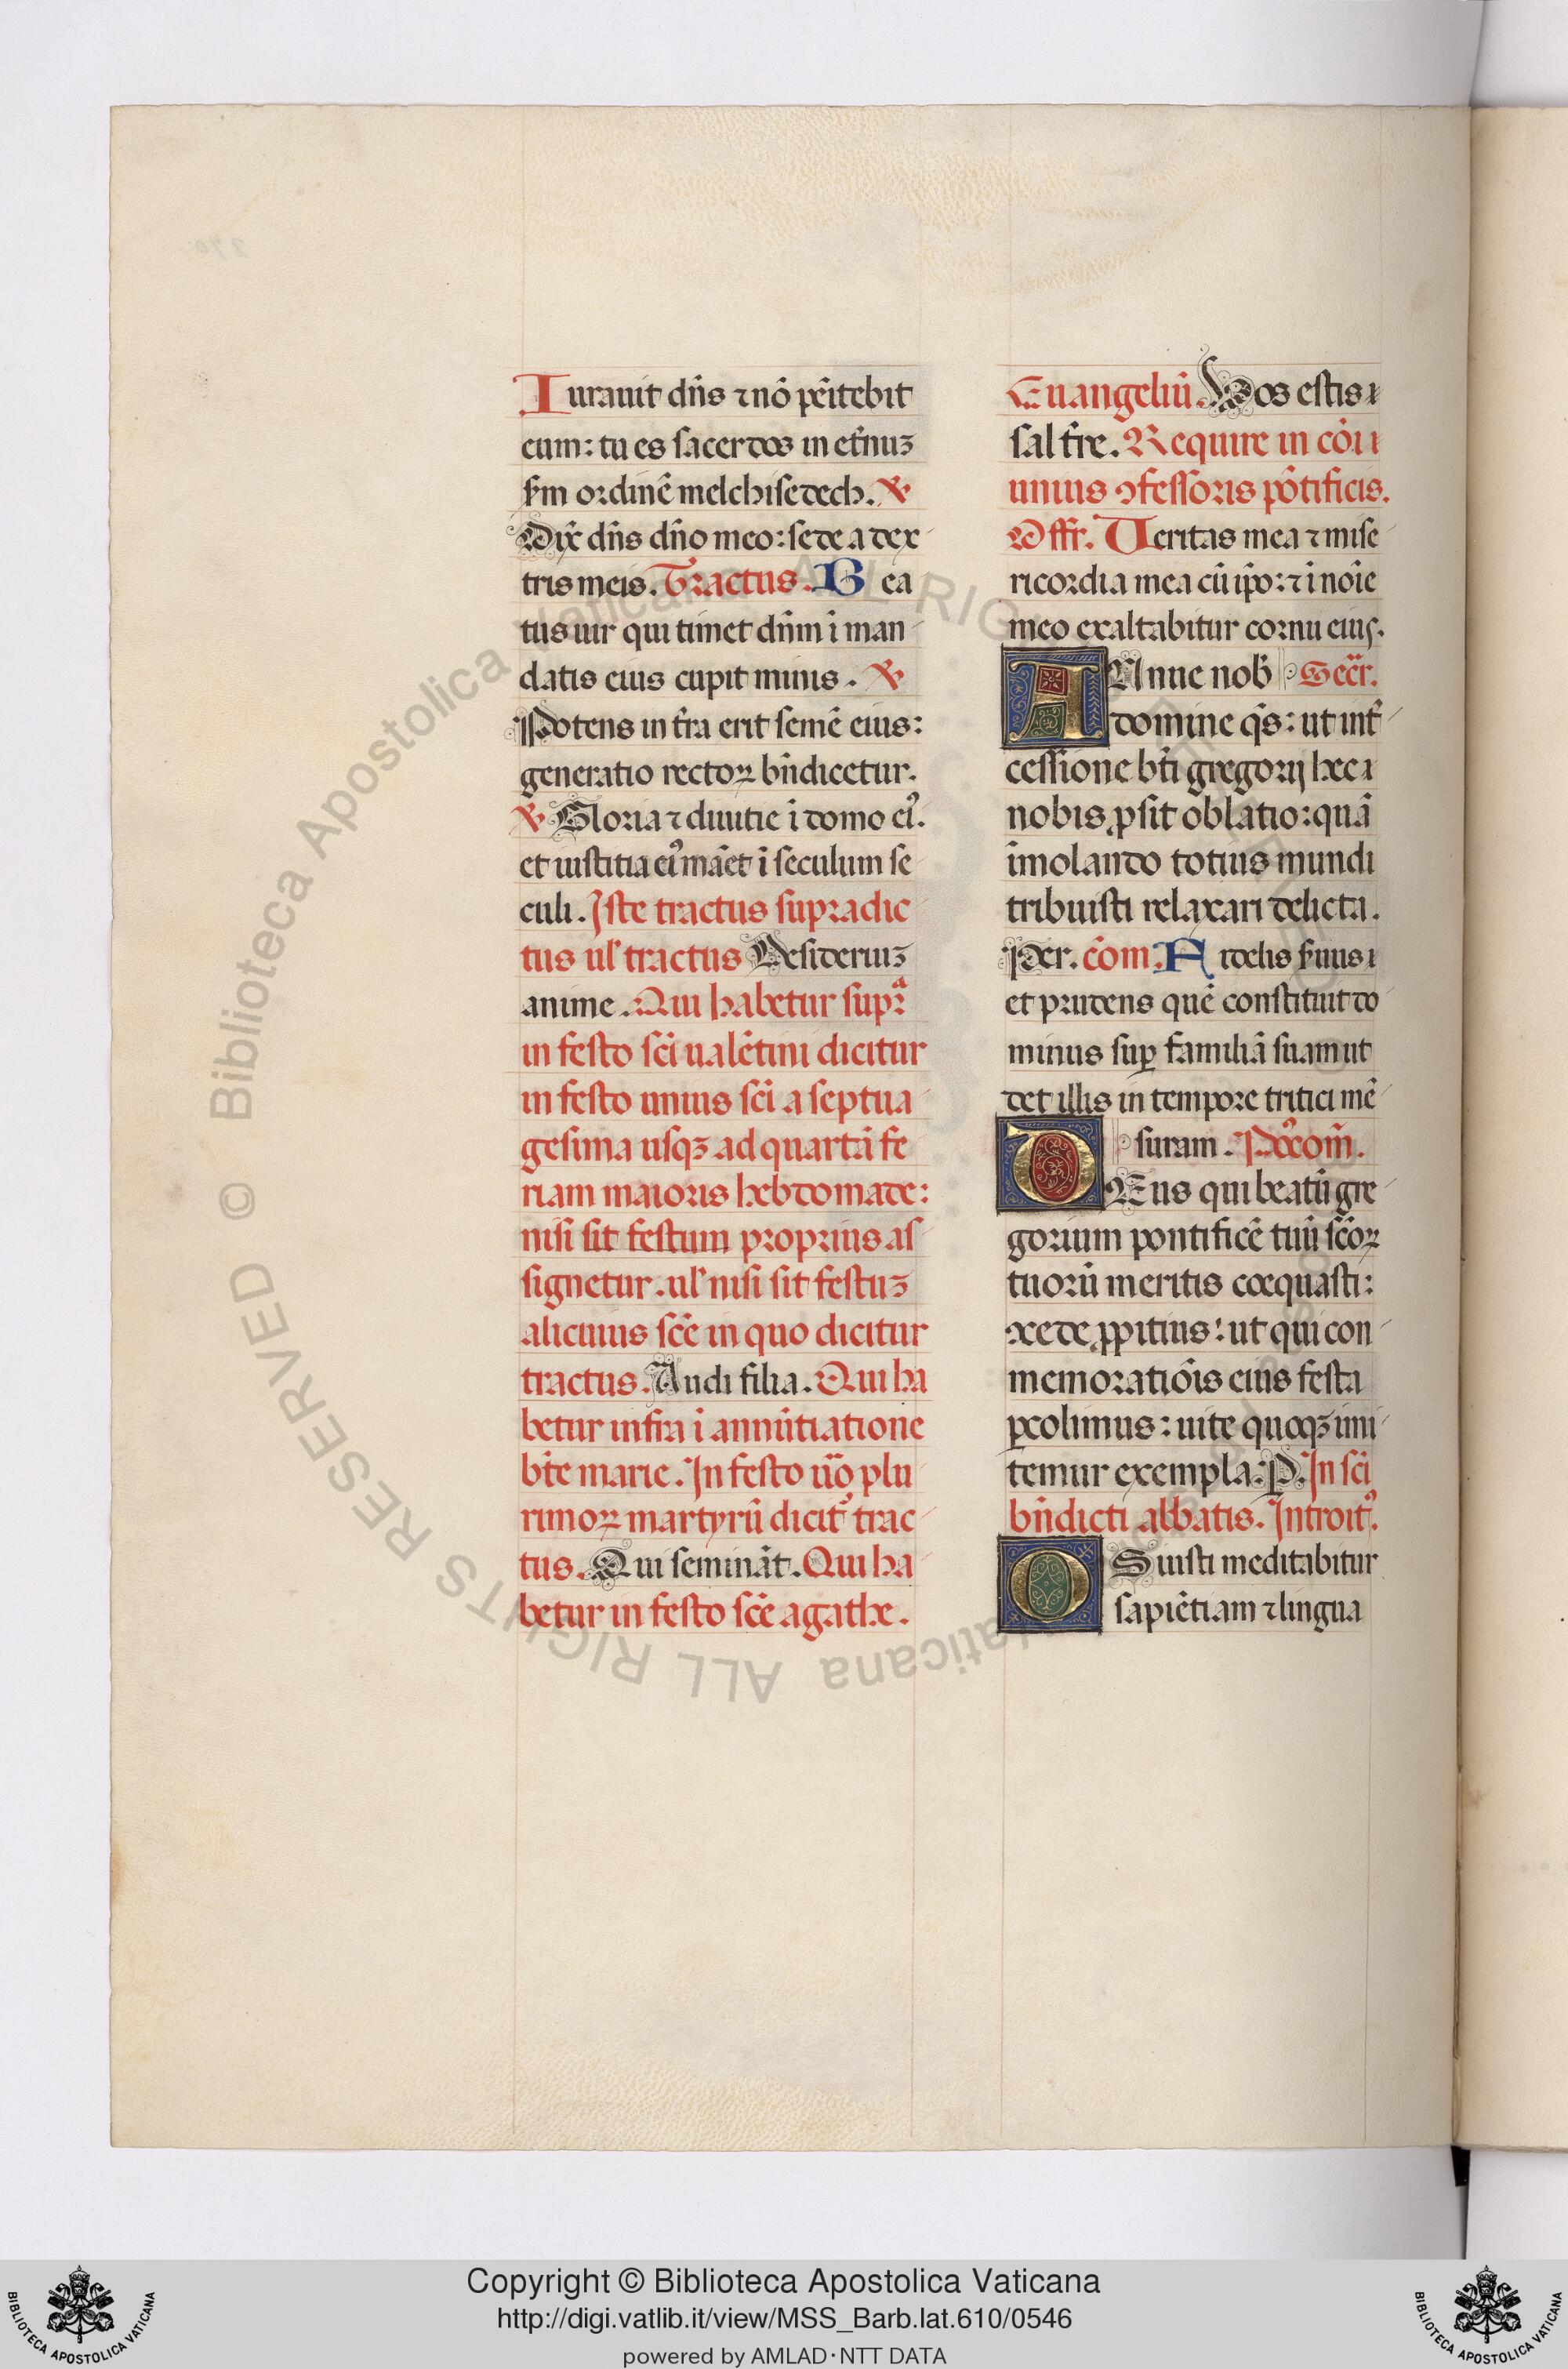 Iurauit dn̄s ⁊ nō pēitebit
eum: tu es sacerdos in et̄nuꝫ
sm̄ ordinē melchisedech. ℣
Dix̄ dn̄s dn̄o meo: sede a dex
tris meis. Tractus. Bea
tus uir qui timet dn̄m ī man
datis eius cupit nimis. ℣
Potens in t̄ra erit semē eius:
generatio rectoꝝ bn̄dicetur.
℣ Gloria ⁊ diuitie ī domo eiꝰ.
et iustitia eiꝰ māet ī seculum se
culi. Iste tractus supradic
tus ul' tractus Desideriuꝫ
anime. Qui habetur supr̄ᵃ
in festo sc̄i ualētini dicitur
in festo unius sc̄i a septua
gesima usqꝫ ad quartā fe
riam maioris hebdomade:
nisi sit festum proprius as
signetur. ul' nisi sit festuꝫ
alicuius sc̄e in quo dicitur
tractus. Audi filia. Qui ha
betur infra ī annūtiatione
bt̄e marie. In festo ūo plu
rimoꝝ martyrū dicit᷑ trac
tus. Qui semināt. Qui ha
betur in festo sc̄e agathe.
Euangeliū. Vos estis
sal t̄re. Require in cōi
unius ꝯfessoris pōtificis.
Offr. Ueritas mea ⁊ mise
ricordia mea cū ip̄o: ⁊ ī noīe
meo exaltabitur cornu eius.
ANnue nob̄ Secr̄.
domine qs̄: ut int̄
cessione bt̄i gregorij hec
nobis ꝓsit oblatio: quā
īmolando totius mundi
tribuisti relaxari delicta.
Per. cōm. Fidelis s̄uus
et prudens quē constituit do
minus suꝑ familiā suam ut
det illis in tempore tritici mē
suram. Pꝰcom̄.
DEus qui beatū gre
gorium pontificē tuū sc̄oꝝ
tuorū meritis coequasti:
ↄcede ꝓpitius: ut qui con
memoratiōis eius festa
ꝑcolimus: uite quoqꝫ imi
temur exempla. P. In sc̄i
bn̄dicti abbatis. Introitꝰ.
OS iusti meditabitur
sapiētiam ⁊ lingua
Copyright © Biblioteca Apostolica Vaticana
http://digi.vatlib.it/view/MSS_Barb.lat.610/0546
powered by AMLAD·NTT DATA
BIBLIOTECA APOSTOLICA VATICANA
BIBLIOTECA APOSTOLICA VATICANA
© Biblioteca Apostolica Vaticana ALL RIGHTS RESERVED